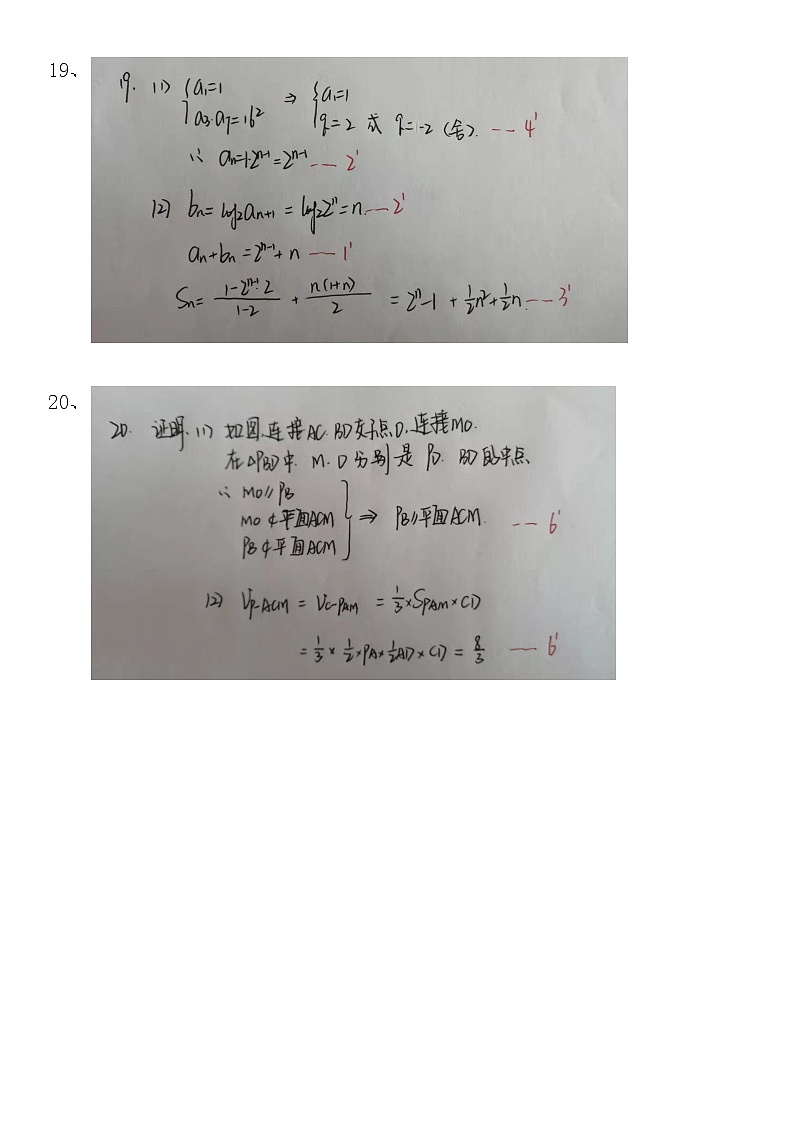 19、
19. (1) { a₁=1
a₃·a₇=16² ⇒ { a₁=1
q=2 或 q=-2 (舍). --- 4'
∴ aₙ=1·2ⁿ⁻¹=2ⁿ⁻¹ --- 2'
(2) bₙ= log₂aₙ₊₁ = log₂2ⁿ=n. --- 2'
aₙ+bₙ =2ⁿ⁻¹+ n --- 1'
Sₙ= (1-2ⁿ⁻¹·2)/(1-2) + n(1+n)/2 = 2ⁿ-1 + ½n²+½n. --- 3'
20、
20. 证明、(1) 如图,连接AC、BD交于点O,连接MO.
在△PBD中. M、O分别是 PD、BD的中点
∴ MO∥PB
MO⊄平面ACM
PB⊄平面ACM
} ⇒ PB∥平面ACM. --- 6'
(2) V_P-ACM = V_C-PAM = ⅓×S_PAM×CD
= ⅓ × ½×PA×½AD×CD = 8/3 --- 6'